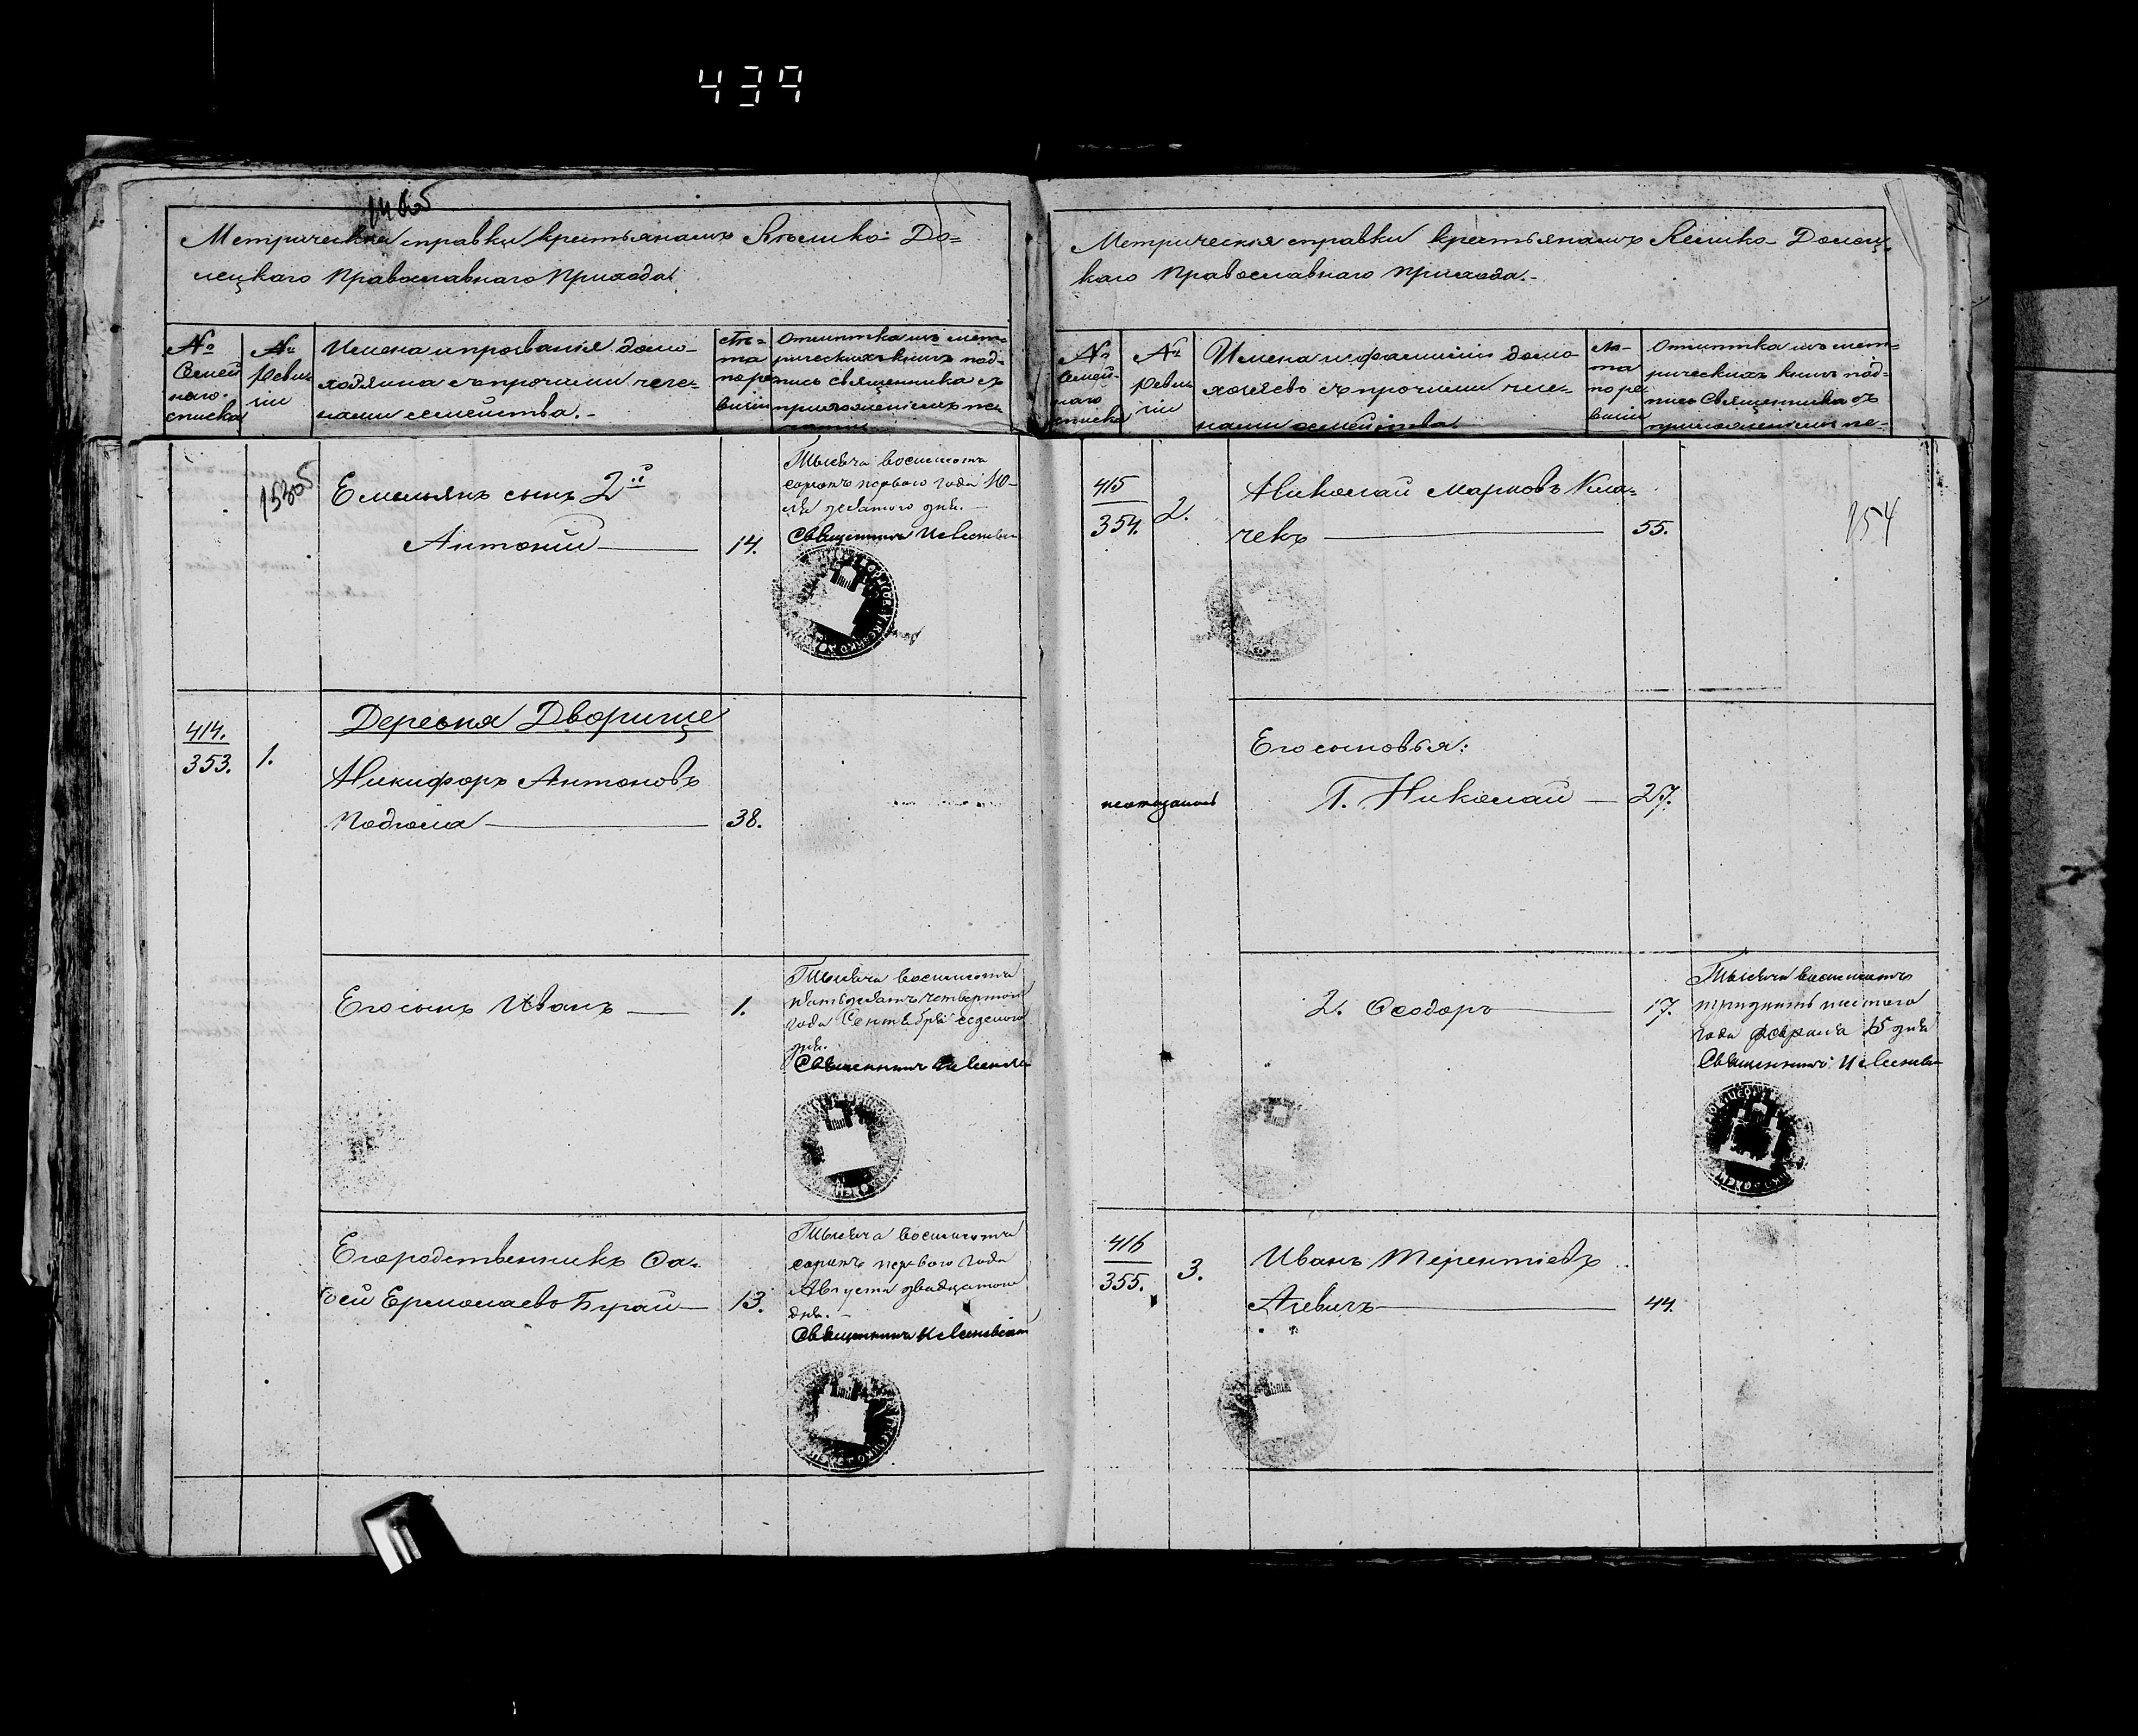 439
Метрическія справки крестьянамъ Велико-До=
лецкаго Православнаго Прихода
№
Семей
наго
списка
№
Реви
зіи
Имена и прозванія домо-
хозяина съ прочими чле=
нами семейства.-
Лѣ=
та
по ре
визіи
Отмѣтка изъ мет=
рическихъ книгъ под=
пись священника съ
приложеніемъ пе-
чати
153 об
Емельянъ сынъ 2й
Антоній
14.
Тысяча восьмсотъ
сорокъ перваго года Ію-
ля десятого дня.-
Священникъ
414.
353.
1.
Деревня Дворище
Никифоръ Антоновъ
38.
Его сынъ Иванъ
1.
Тысяча восьмсотъ
пятьдесятъ четвертого
года Сентября седмого
дня.
Священникъ
Его родственникъ Са=
Ермолаевъ Бурай
13.
Тысяча восьмсотъ
сорокъ перваго года
Августа двадцатого
дня.-
Священникъ
Метрическія справки крестьянамъ Велико-Долец
каго Православнаго Прихода.-
№
Семей-
наго
списка
№
Реви
зіи
Имена и фамиліи домо
хозяевъ съ прочими чле=
нами семейства
лѣ-
та
по ре
визіи
Отмѣтка изъ мет=
рическихъ книгъ под=
пись Священника съ
приложеніемъ пе=
154
415
354.
2.
Николай Марковъ Кла=
чекъ
55.
Его сыновья:
1. Николай
27.
2. Ѳеодоръ
17.
Тысяча восьмсотъ
тридцать шестого
года февраля 15 дня
Священникъ
416
355.
3.
Иванъ Терентіевъ
Ачевичъ
44.